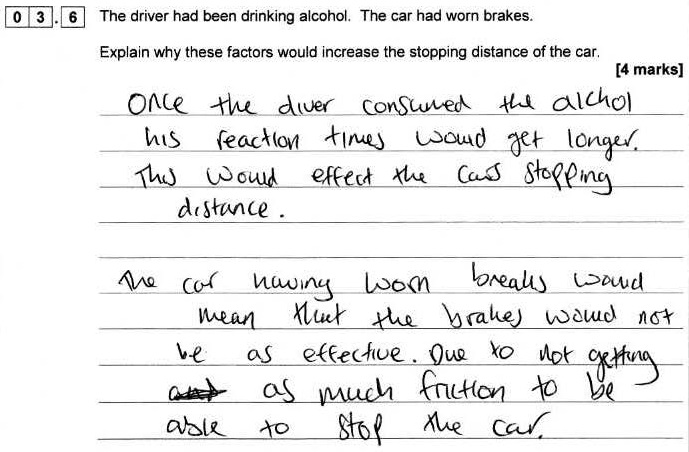 0 3 . 6 The driver had been drinking alcohol. The car had worn brakes.
Explain why these factors would increase the stopping distance of the car.
[4 marks]
Once the diver consumed the alchol
his reaction times would get longer.
This would effect the cars stopping
distance.
The car having worn breaks would
mean that the brakes would not
be as effective. Due to not getting
as much friction to be
able to stop the car.